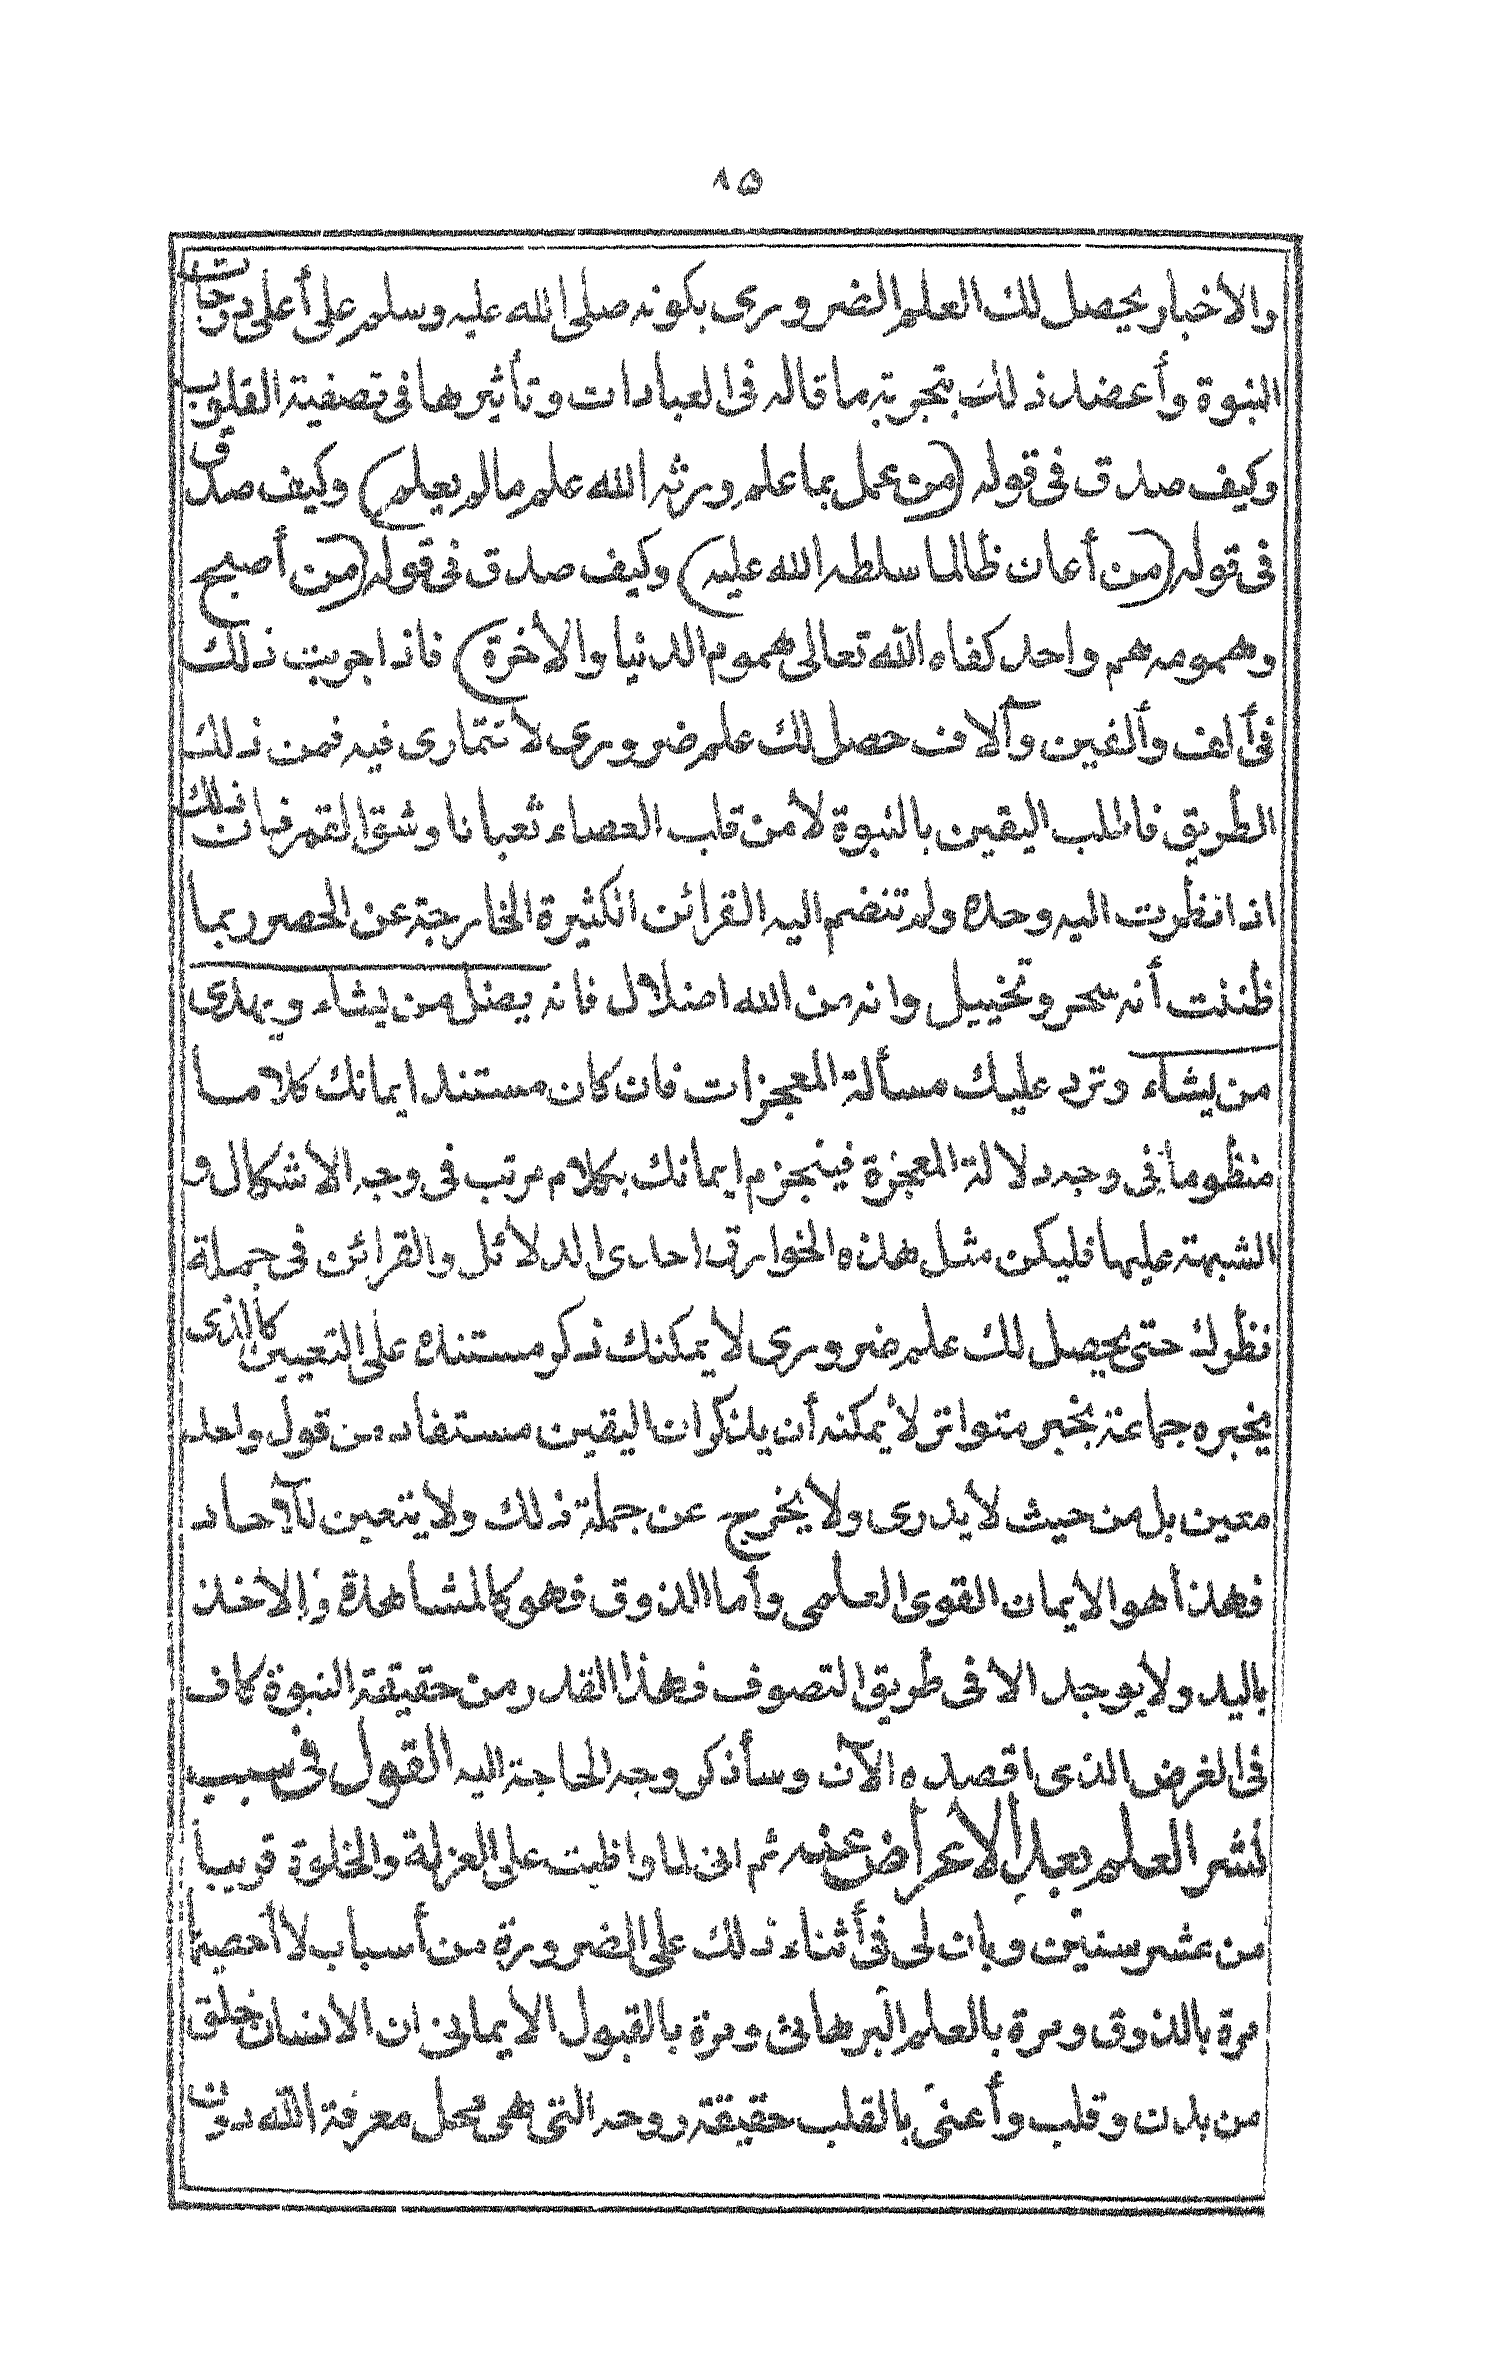 ٨٥
والاخبار يحصل لك العلم الضرورى بكونه صلى الله عليه وسلم على أعلى درجات
النبوة وأعضد ذلك بتجربة ما قاله فى العبادات وتأثيرها فى تصفية القلوب
وكيف صدق فى قوله (من عمل بما علم ورثه الله علم مالم يعلم) وكيف صدق
فى قوله (من أعان ظالما سلطه الله عليه) وكيف صدق فى قوله (من أصبح
وهمومه هم واحد كفاه الله تعالى هموم الدنيا والأخرة) فاذا جربت ذلك
فى ألف وألفين وآلاف حصل لك علم ضرورى لا تتمارى فيه فمن ذلك
الطريق فاطلب اليقين بالنبوة لا من قلب العصاء ثعبانا وشق القمر فان ذلك
اذا نظرت اليه وحده ولم تنضم اليه القرائن الكثيرة الخارجة عن الحصر ربما
ظننت أنه سحر وتخييل وانه من الله اضلال فانه يضل من يشاء ويهدى
من يشاء وترد عليك مسألة المعجزات فان كان مستند ايمانك كلاما
منظوما فى وجه دلالة المعجزة فينجزم ايمانك بكلام مرتب فى وجه الاشكال و
الشبهة عليها فليكن مثل هذه الخوارق احدى الدلائل والقرائن فى جملة
نظرك حتى يحصل لك علم ضرورى لا يمكنك ذكر مستنده على التعيين كالذى
يخبره جماعة بخبر متواتر لا يمكنه أن يذكر ان اليقين مستفاد من قول واحد
معين بل من حيث لا يدرى ولا يخرج عن جملة ذلك ولا يتعين للآحاد
فهذا هو الايمان القوى العلمى وأما الذوق فهو كالمشاهدة والاخذ
باليد ولا يوجد الا فى طريق التصوف فهذا القدر من حقيقة النبوة كاف
فى الغرض الذى اقصده الآن وسأذكر وجه الحاجة اليه القول فى سبب
نشر العلم بعد الأعراض عنه ثم انى لما واظبت على العزلة والخلوة قريبا
من عشر سنين وبان لى فى أثناء ذلك على الضرورة من أسباب لا أحصيها
مرة بالذوق ومرة بالعلم البرهانى ومرة بالقبول الأيمانى ان الأنسان خلق
من بدن وقلب وأعنى بالقلب حقيقة روحه التى هى محل معرفة الله دون